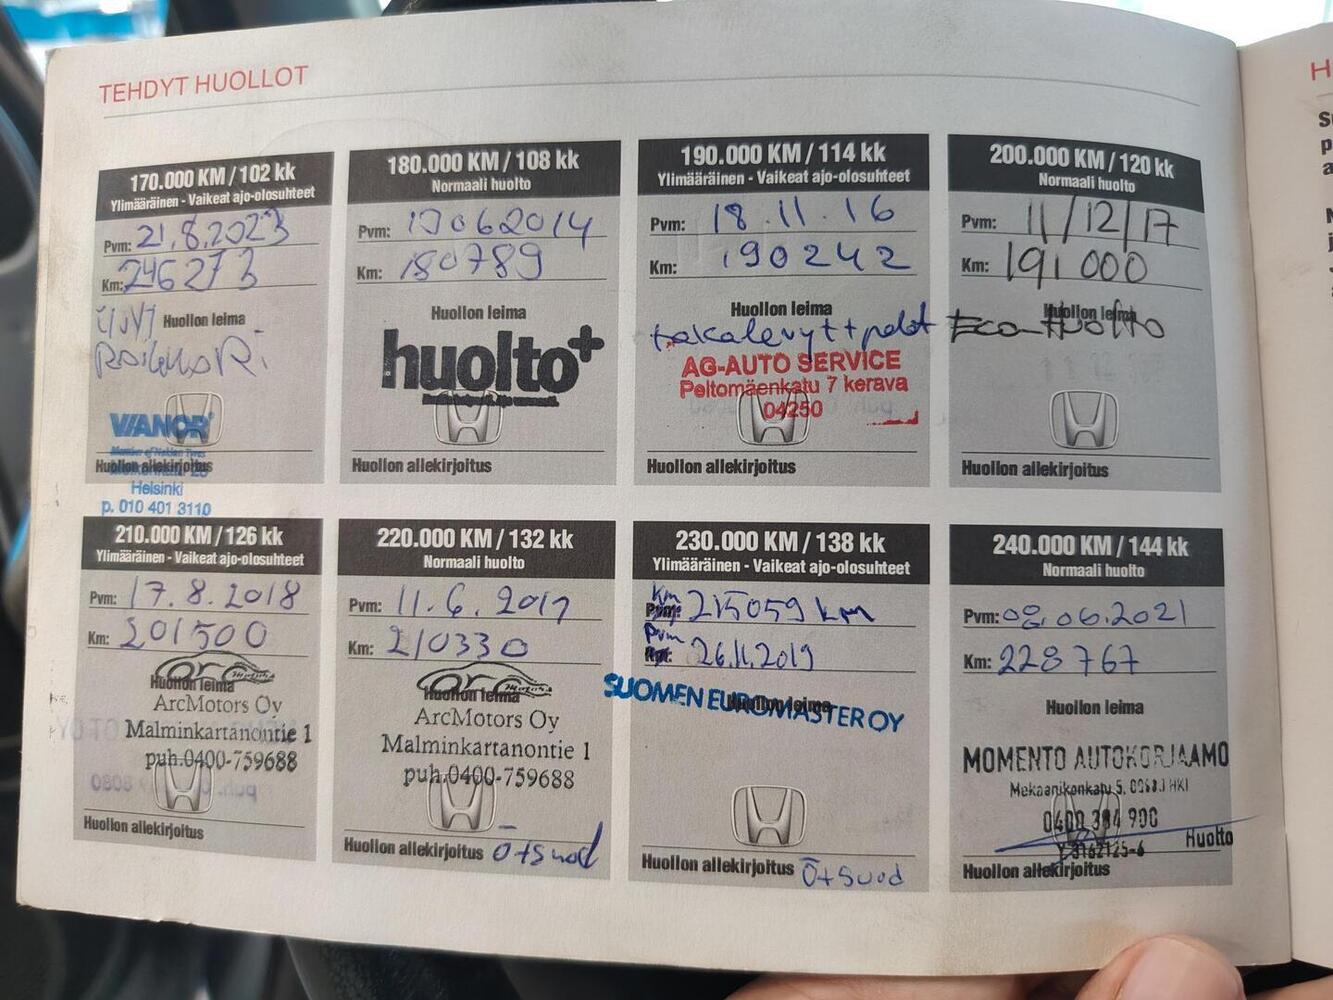 TEHDYT HUOLLOT
170.000 KM / 102 kk
Ylimääräinen - Vaikeat ajo-olosuhteet
Pvm: 21.8.2023
Km: 246273
Huollon leima
VIANOR
Member of Nokian Tyres
Huollon allekirjoitus
Helsinki
p. 010 401 3110
180.000 KM / 108 kk
Normaali huolto
Pvm: 19062014
Km: 180789
Huollon leima
huolto+
Huollon allekirjoitus
190.000 KM / 114 kk
Ylimääräinen - Vaikeat ajo-olosuhteet
Pvm: 18.11.16
Km: 190242
Huollon leima
takalevyt + palat
AG-AUTO SERVICE
Peltomäenkatu 7 kerava
04250
Huollon allekirjoitus
200.000 KM / 120 kk
Normaali huolto
Pvm: 11/12/17
Km: 191000
Huollon leima
Eco-Huolto
Huollon allekirjoitus
210.000 KM / 126 kk
Ylimääräinen - Vaikeat ajo-olosuhteet
Pvm: 17.8.2018
Km: 201500
Huollon leima
arc Motors
ArcMotors Oy
Malminkartanontie 1
puh.0400-759688
Huollon allekirjoitus
220.000 KM / 132 kk
Normaali huolto
Pvm: 11.6.2019
Km: 210330
Huollon leima
arc Motors
ArcMotors Oy
Malminkartanontie 1
puh.0400-759688
Huollon allekirjoitus Ö+Suod
230.000 KM / 138 kk
Ylimääräinen - Vaikeat ajo-olosuhteet
Km 215059 km
Pvm 26.11.2019
Huollon leima
SUOMEN EUROMASTER OY
Huollon allekirjoitus Ö+Suod
240.000 KM / 144 kk
Normaali huolto
Pvm: 08.06.2021
Km: 228767
Huollon leima
MOMENTO AUTOKORJAAMO
Mekaanikonkatu 5, HKI
0400 384 900
Y-3162125-6 Huolto
Huollon allekirjoitus